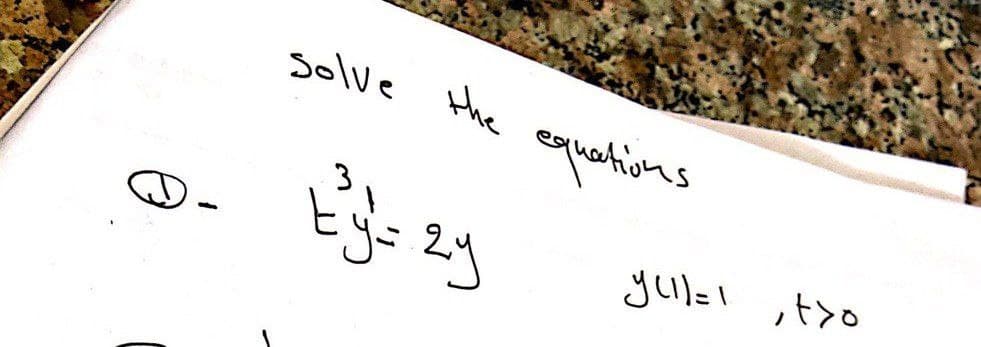 Solve the equations
①- t³y' = 2y   y(1)=1 , t>0